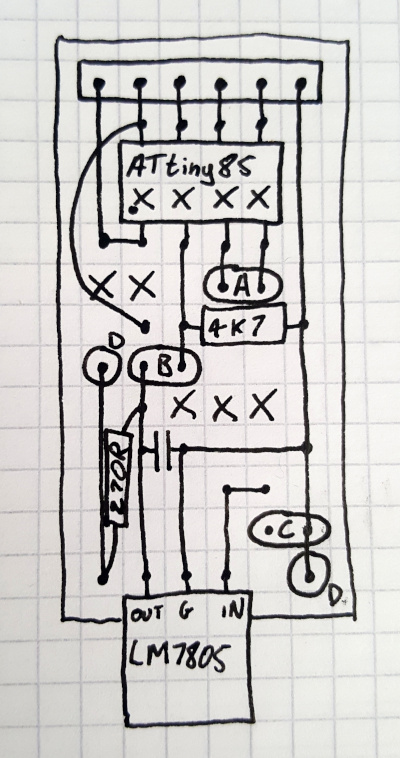 ATtiny85
X X X X
X X
A
4K7
D
B
X X X
270R
C
D
OUT G IN
LM7805